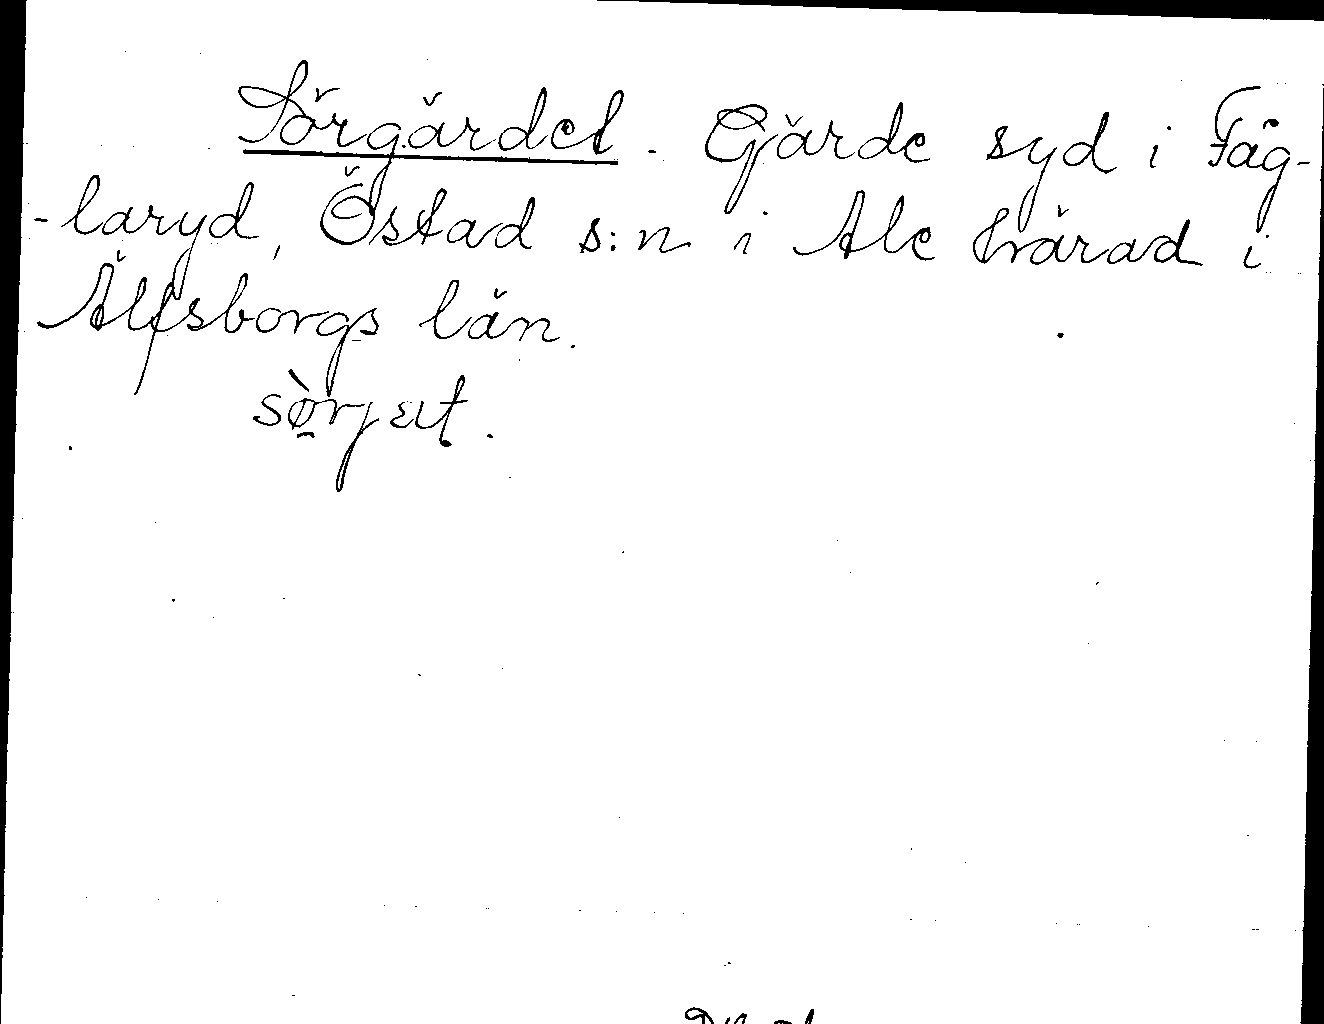 Sörgärdet. Gärde syd i Fåg-
-laryd, Östad s:n i Ale härad i
Älfsborgs län.